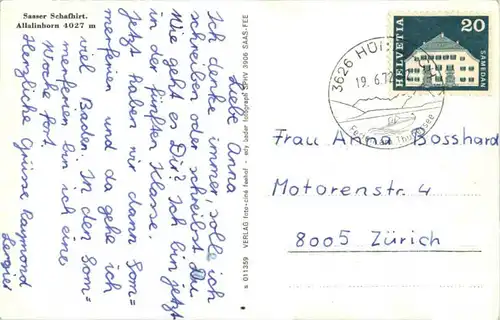 Sasser Schafhirt.
Allalinhorn 4027 m
Liebe Anna
Ich denke immer, solle ich
schreiben oder schreibst Du.
Wie geht es Dir? Ich bin jetzt
in der fünften Klasse.
Jetzt haben wir dann Som=
merferien und da gehe ich
viel Baden. In den Som=
merferien bin ich eine
Woche fort.
Herzliche Grüsse Raymond
a 011359 VERLAG foto-ciné feehof - ety bader fotograf SPHV 3906 SAAS-FEE
3626 HÜN
19.6.72
HELVETIA
20
SAMEDAN
Frau Anna Bosshard
Motorenstr. 4
8005 Zürich